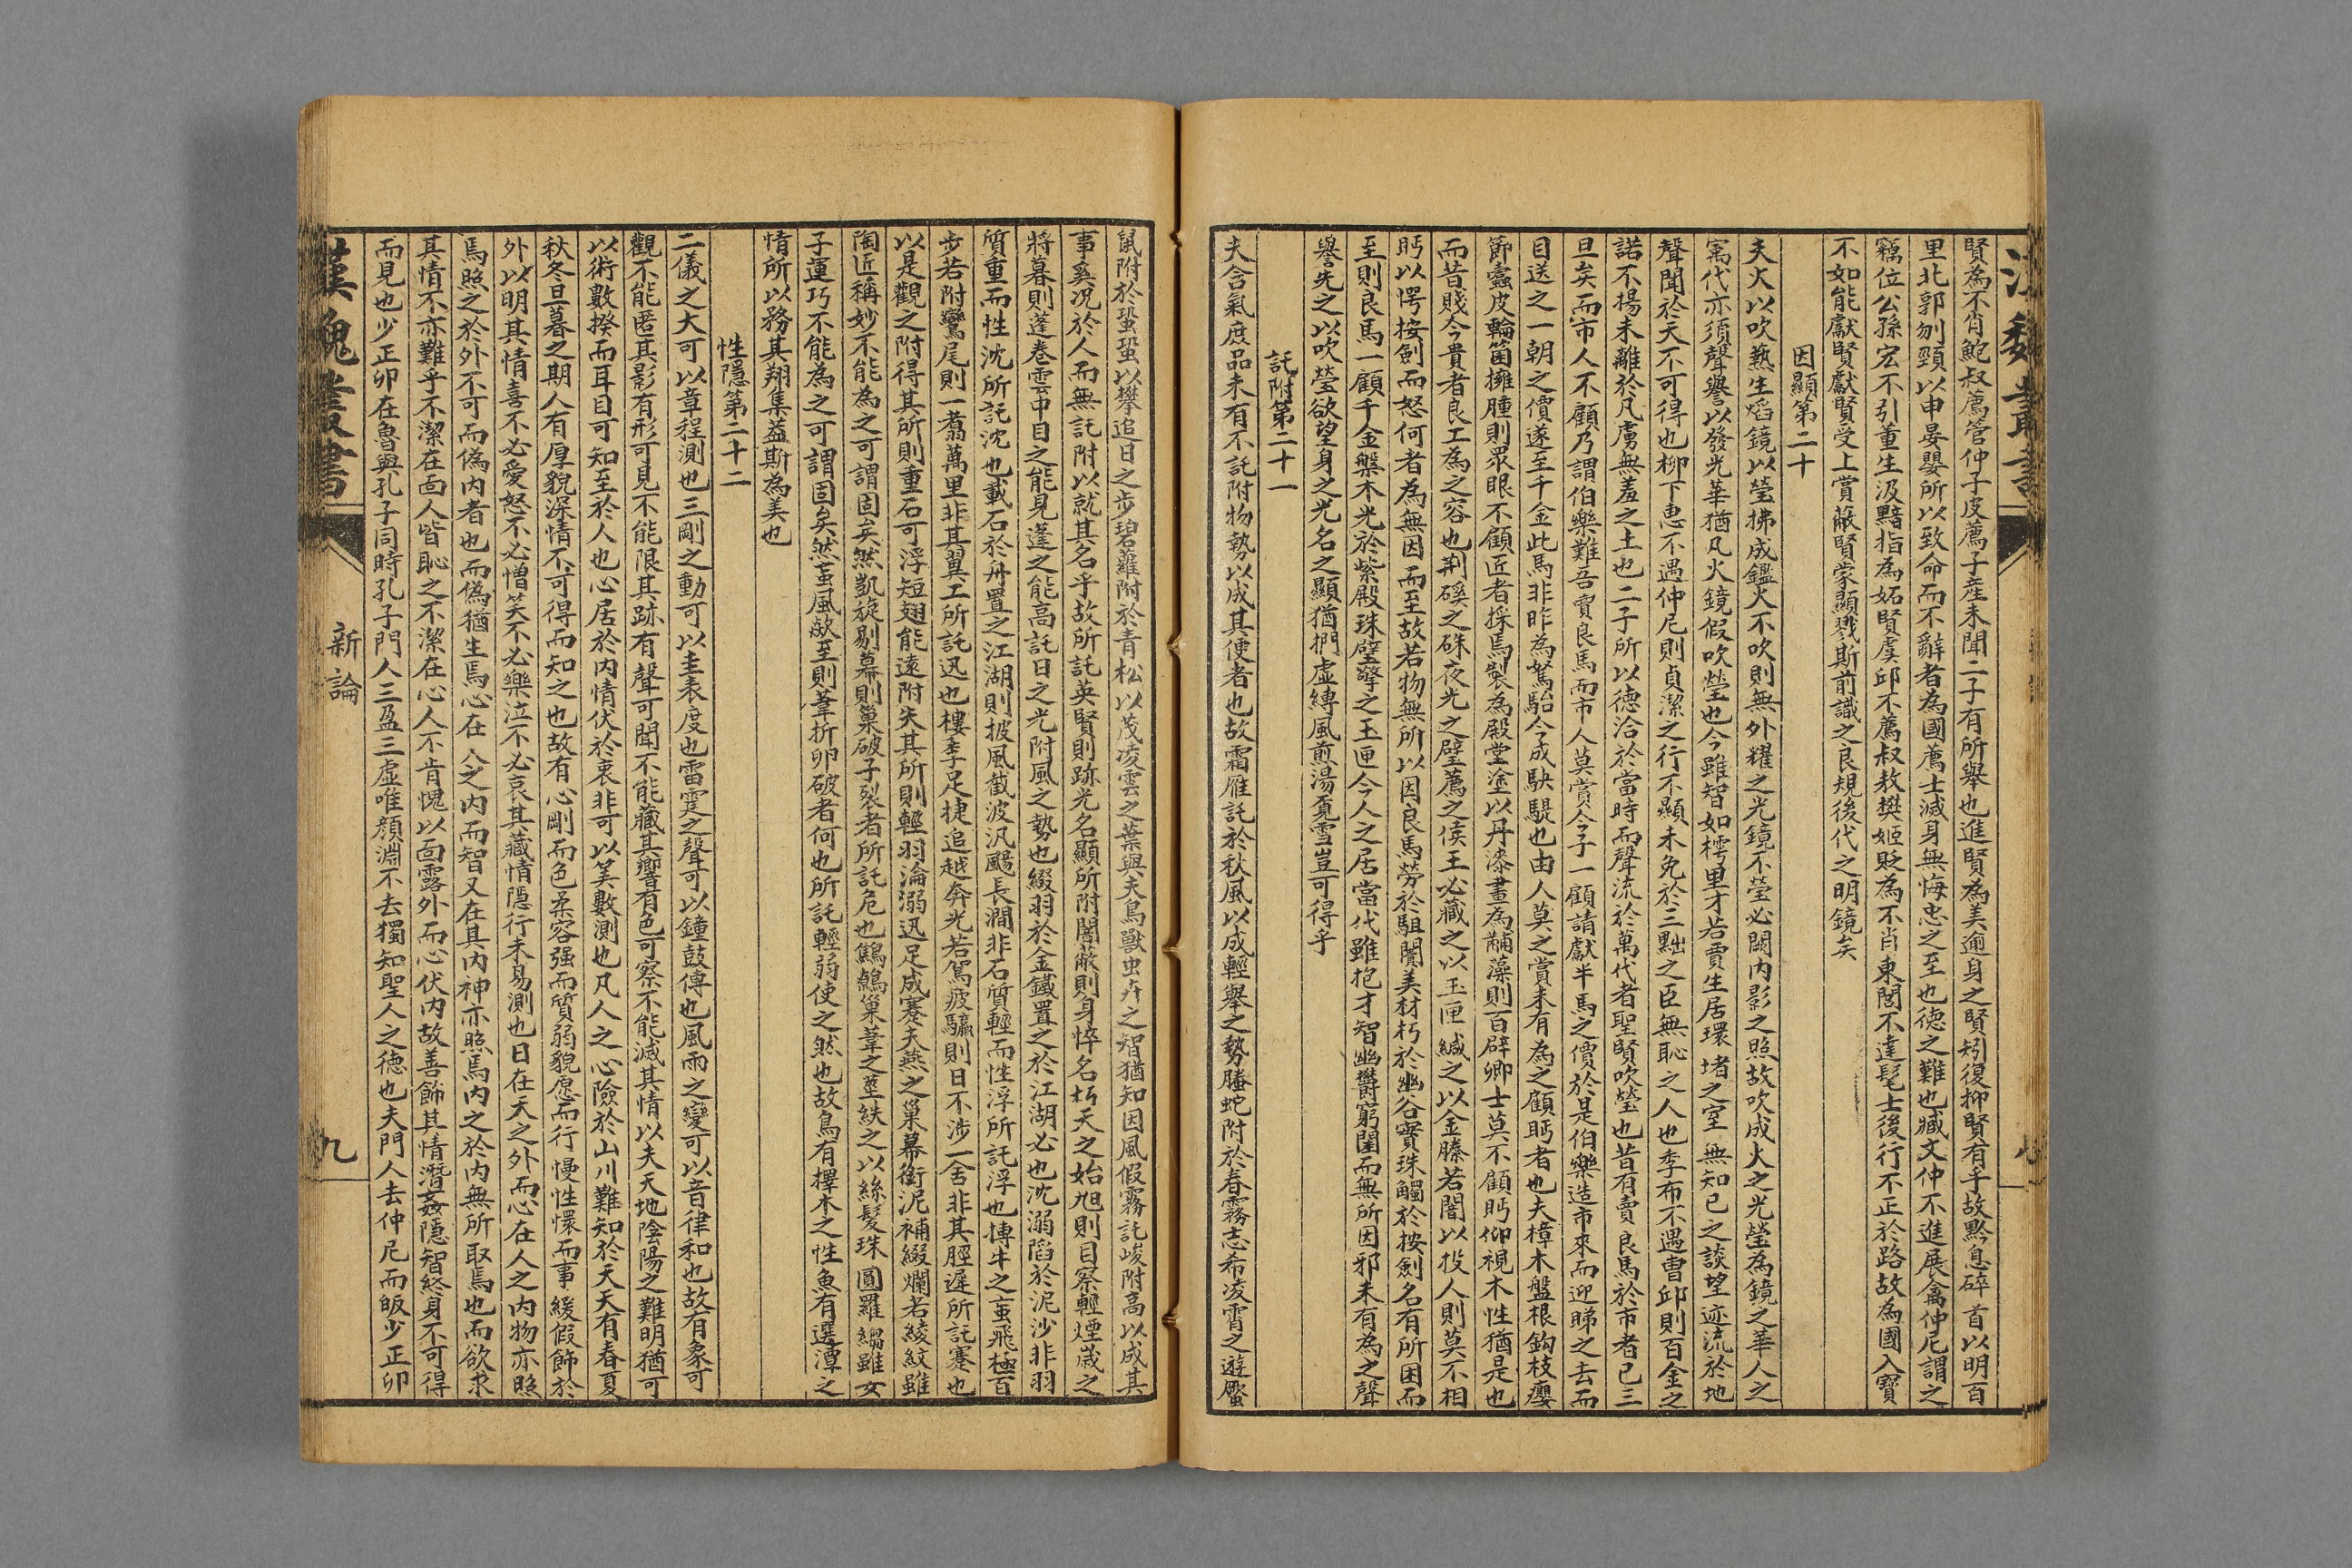 賢為不肖鮑叔薦管仲子皮薦子產未聞二子有所舉也進賢為美逾身之賢矧復抑賢有乎故黔息碎首以明百
里北郭刎頸以申晏嬰所以致命而不辭者為國薦士滅身無悔忠之至也德之難也臧文仲不進展禽仲尼謂之
竊位公孫宏不引董生汲黯指為妬賢虞邱不薦叔敖樊姬貶為不肖東閤不達髦士後行不正於路故為國入寶
不如能獻賢獻賢受上賞蔽賢蒙顯戮斯前識之良規後代之明鏡矣
因顯第二十
夫火以吹爇生焰鏡以瑩拂成鑑火不吹則無外耀之光鏡不瑩必闕內影之照故吹成火之光瑩為鏡之華人之
寓代亦須聲譽以發光華猶凡火鏡假吹瑩也今雖智如樗里才若賈生居環堵之室無知已之談望迹流於地
聲聞於天不可得也柳下惠不遇仲尼則貞潔之行不顯未免於三黜之臣無恥之人也季布不遇曹邱則百金之
諾不揚未離於凡虜無羞之士也二子所以德洽於當時而聲流於萬代者聖賢吹瑩也昔有賣良馬於市者已三
旦矣而市人不顧乃謂伯樂難吾賣良馬而市人莫賞今子一顧請獻半馬之價於是伯樂造市來而迎睇之去而
目送之一朝之價遂至千金此馬非昨為駑駘今成駃騠也由人莫之賞未有為之顧眄者也夫樟木盤根鈎枝癭
節蠹皮輪箘擁腫則眾眼不顧匠者採焉製為殿堂塗以丹漆畫為黼藻則百辟卿士莫不顧眄仰視木性猶是也
而昔賤今貴者良工為之容也荆磎之硃夜光之璧薦之侯王必藏之以玉匣緘之以金縢若闇以投人則莫不相
眄以愕按劍而怒何者為無因而至故若物無所以因良馬勞於駔闤美材朽於幽谷寳珠觸於按劍名有所困而
至則良馬一顧千金槃木光於紫殿珠璧擎之玉匣今人之居當代雖抱才智幽欝窮閨而無所因邪未有為之聲
譽先之以吹瑩欲望身之光名之顯猶捫虛縳風煎湯覔雪豈可得乎
託附第二十一
夫含氣庶品未有不託附物勢以成其便者也故霜雁託於秋風以成輕舉之勢螣蛇附於春霧志希凌霄之遊蟨
鼠附於蛩蛩以攀追日之步碧蘿附於青松以茂凌雲之葉與夫鳥獸虫卉之智猶知因風假霧託峻附高以成其
事奚况於人而無託附以就其名乎故所託英賢則跡光名顯所附闇蔽則身悴名朽天之始旭則目察輕煙歲之
將暮則蓬卷雲中目之能見蓬之能高託日之光附風之勢也綴羽於金鐵置之於江湖必也沈溺陷於泥沙非羽
質重而性沈所託沈也載石於舟置之江湖則披風截波汎颺長澗非石質輕而性浮所託浮也搏牛之䖟飛極百
步若附鸞尾則一翥萬里非其翼工所託迅也樓季足捷追越奔光若駕疲驢則日不涉一舍非其脛遲所託蹇也
以是觀之附得其所則重石可浮短翅能遠附失其所則輕羽淪溺迅足成蹇夫燕之巢幕銜泥補綴爛若綾紋雖
陶匠稱妙不能為之可謂固矣然凱旋剔幕則巢破子裂者所託危也鷦鷯巢葦之莖紩之以絲髮珠圓羅縐雖女
子運巧不能為之可謂固矣然䖟風歘至則葦折卵破者何也所託輕弱使之然也故鳥有擇木之性魚有選潭之
情所以務其翔集蓋斯為美也
性隱第二十二
二儀之大可以章程測也三剛之動可以圭表度也雷霆之聲可以鐘鼓傳也風雨之變可以音律和也故有象可
觀不能匿其影有形可見不能限其跡有聲可聞不能藏其響有色可察不能滅其情以夫天地陰陽之難明猶可
以術數揆而耳目可知至於人也心居於內情伏於衷非可以筭數測也凡人之心險於山川難知於天天有春夏
秋冬旦暮之期人有厚貌深情不可得而知之也故有心剛而色柔容强而質弱貌愿而行慢性懁而事緩假飾於
外以明其情喜不必愛怒不必憎笑不必樂泣不必哀其藏情隱行未易測也日在天之外而心在人之內物亦照
焉照之於外不可而偽內者也而偽猶生焉心在人之內而智又在其內神亦照焉內之於內無所取焉也而欲求
其情不亦難乎不潔在面人皆恥之不潔在心人不肯愧以面露外而心伏內故善飾其情潛姦隱智終身不可得
而見也少正卯在魯與孔子同時孔子門人三盈三虛唯顏淵不去獨知聖人之德也夫門人去仲尼而皈少正卯
漢魏叢書
新論
九